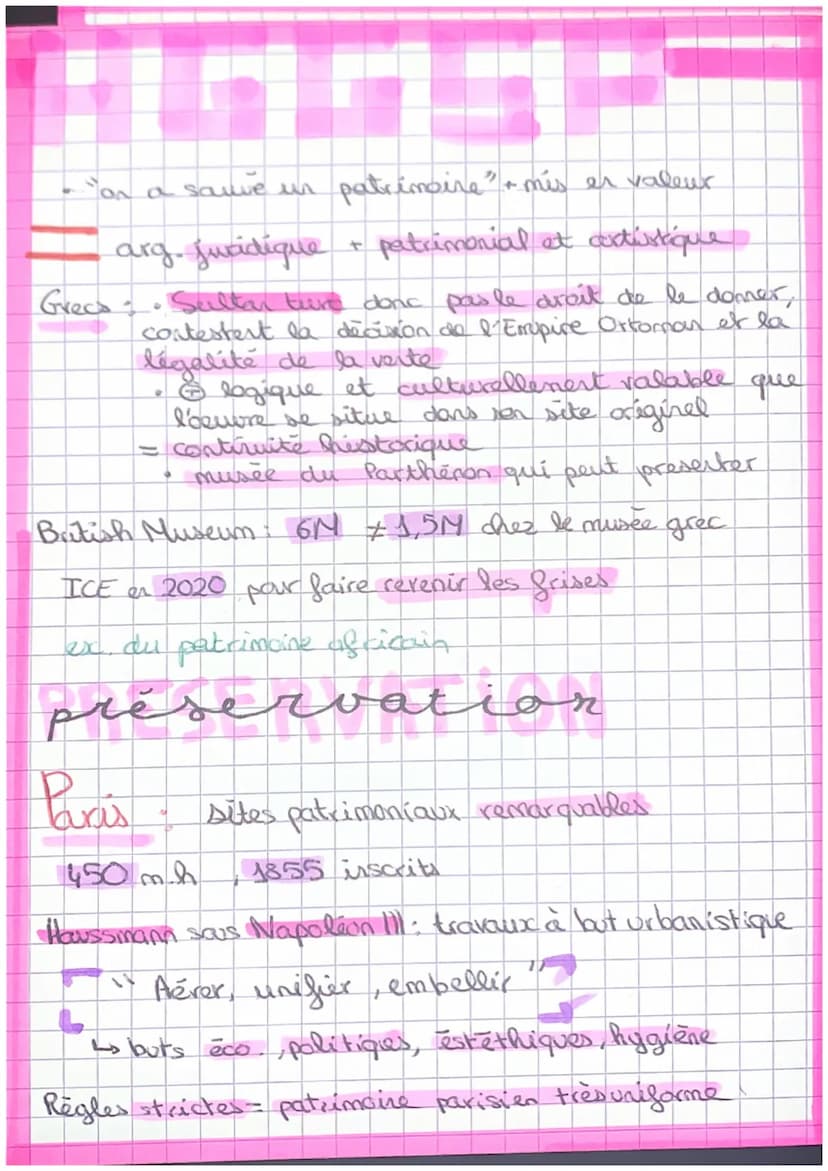 HGGSP
• "on a sauvé un patrimoine" + mis en valeur
= arg. juridique + patrimonial et artistique
Grecs : • Sultan turc donc pas le droit de le donner,
contestent la décision de l'Empire Ottoman et la
légalité de la vente
• ⊕ logique et culturellement valable que
l'oeuvre se situe dans son site originel
= continuité historique
• musée du Parthénon qui peut présenter
British Museum : 6M ≠ 1,5M chez le musée grec
ICE en 2020 pour faire revenir les frises
ex. du patrimoine africain
préservation
PRÉSERVATION
Paris : sites patrimoniaux remarquables
450 m.h , 1855 inscrits
Haussmann sous Napoléon III : travaux à but urbanistique
"Aérer, unifier, embellir"
↳ buts éco., politiques, éstéthiques, hygiène
Règles strictes = patrimoine parisien très uniforme